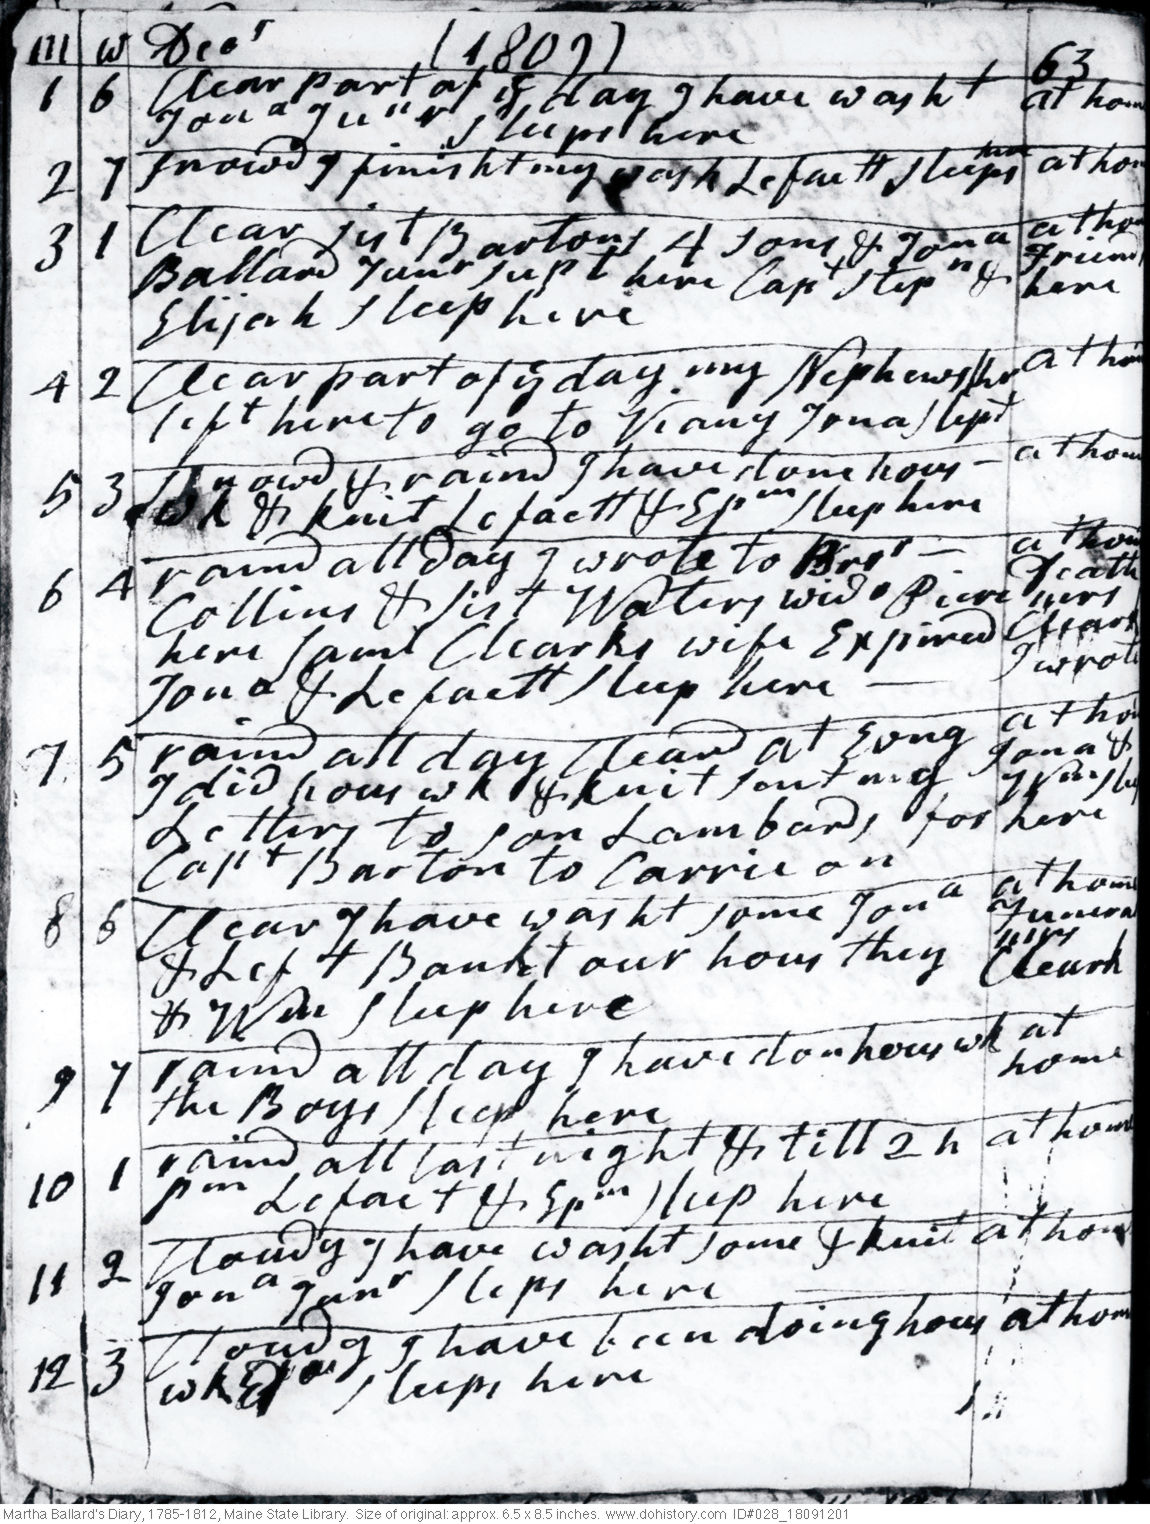 m w Decr (1809) 63
1 6 Clear part of ye day I have washt at home
Jona Junr Sleeps here
2 7 snowd I finisht my wash Lefaett Sleeps here at home
3 1 Clear sist Bartons 4 sons & Jona at home
Ballard Junr supt here Capt Stepn & Friends
Elijah Sleep here here
4 2 Clear part of ye day my Nephews at home
left here to go to Viany Jona Slept
5 3 Snowd & raind I have done hous at home
wk & knit Lefaett & Epm Sleep here
6 4 raind all day I wrote to Bror at home
Collins & Sist Waters wido Pierc Death
here Saml Clearks wife Expired mrs Cleark
Jona & Lefaett Sleep here I wrote
7 5 raind all day Cleard at Evng at home
I did hous wk & knit sent my Jona &
Letters to son Lambards for Wm Sleep
Capt Barton to Carrie on here
8 6 Clear I have washt some Jona at home
& Lef t Bankt our hous they Funeral
& Wm Sleep here mrs Cleark
9 7 raind all day I have don hous wk at
the Boys Sleep here home
10 1 raind all last night & till 2 h at home
pm Lefaet & Epm Sleep here
11 2 Cloudy I have washt some & knit at home
Jona Junr Sleeps here
12 3 Cloudy I have been doing hous at home
wk Sleeps here
Martha Ballard's Diary, 1785-1812, Maine State Library. Size of original: approx. 6.5 x 8.5 inches. www.dohistory.com ID#028_18091201